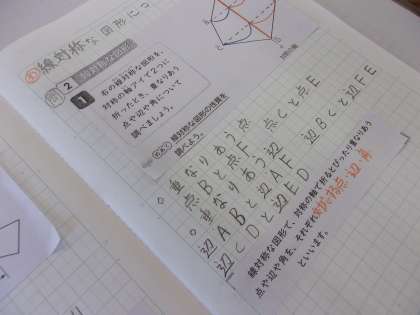 線対称な図形につ
問
2
1
右の線対称な図形を、
対称の軸アイで2つに
折ったとき、重なりあう
点や辺や角について
調べましょう。
対称の軸
めあて
線対称な図形の性質を
調べよう。
○重なりあう点
点Bと点F 点Cと点E
○重なりあう辺
辺ABと辺AF 辺BCと辺FE
辺CDと辺ED
線対称な図形で、対称の軸で折るとぴったり重なりあう
点や辺や角を、それぞれ対応する点・辺・角
といいます。